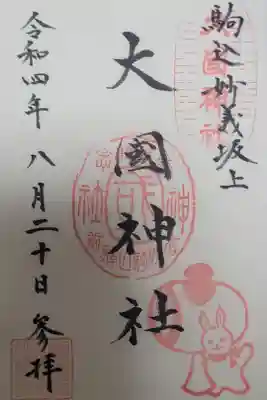 駒込妙義坂上
大國神社
令和四年八月二十日参拝